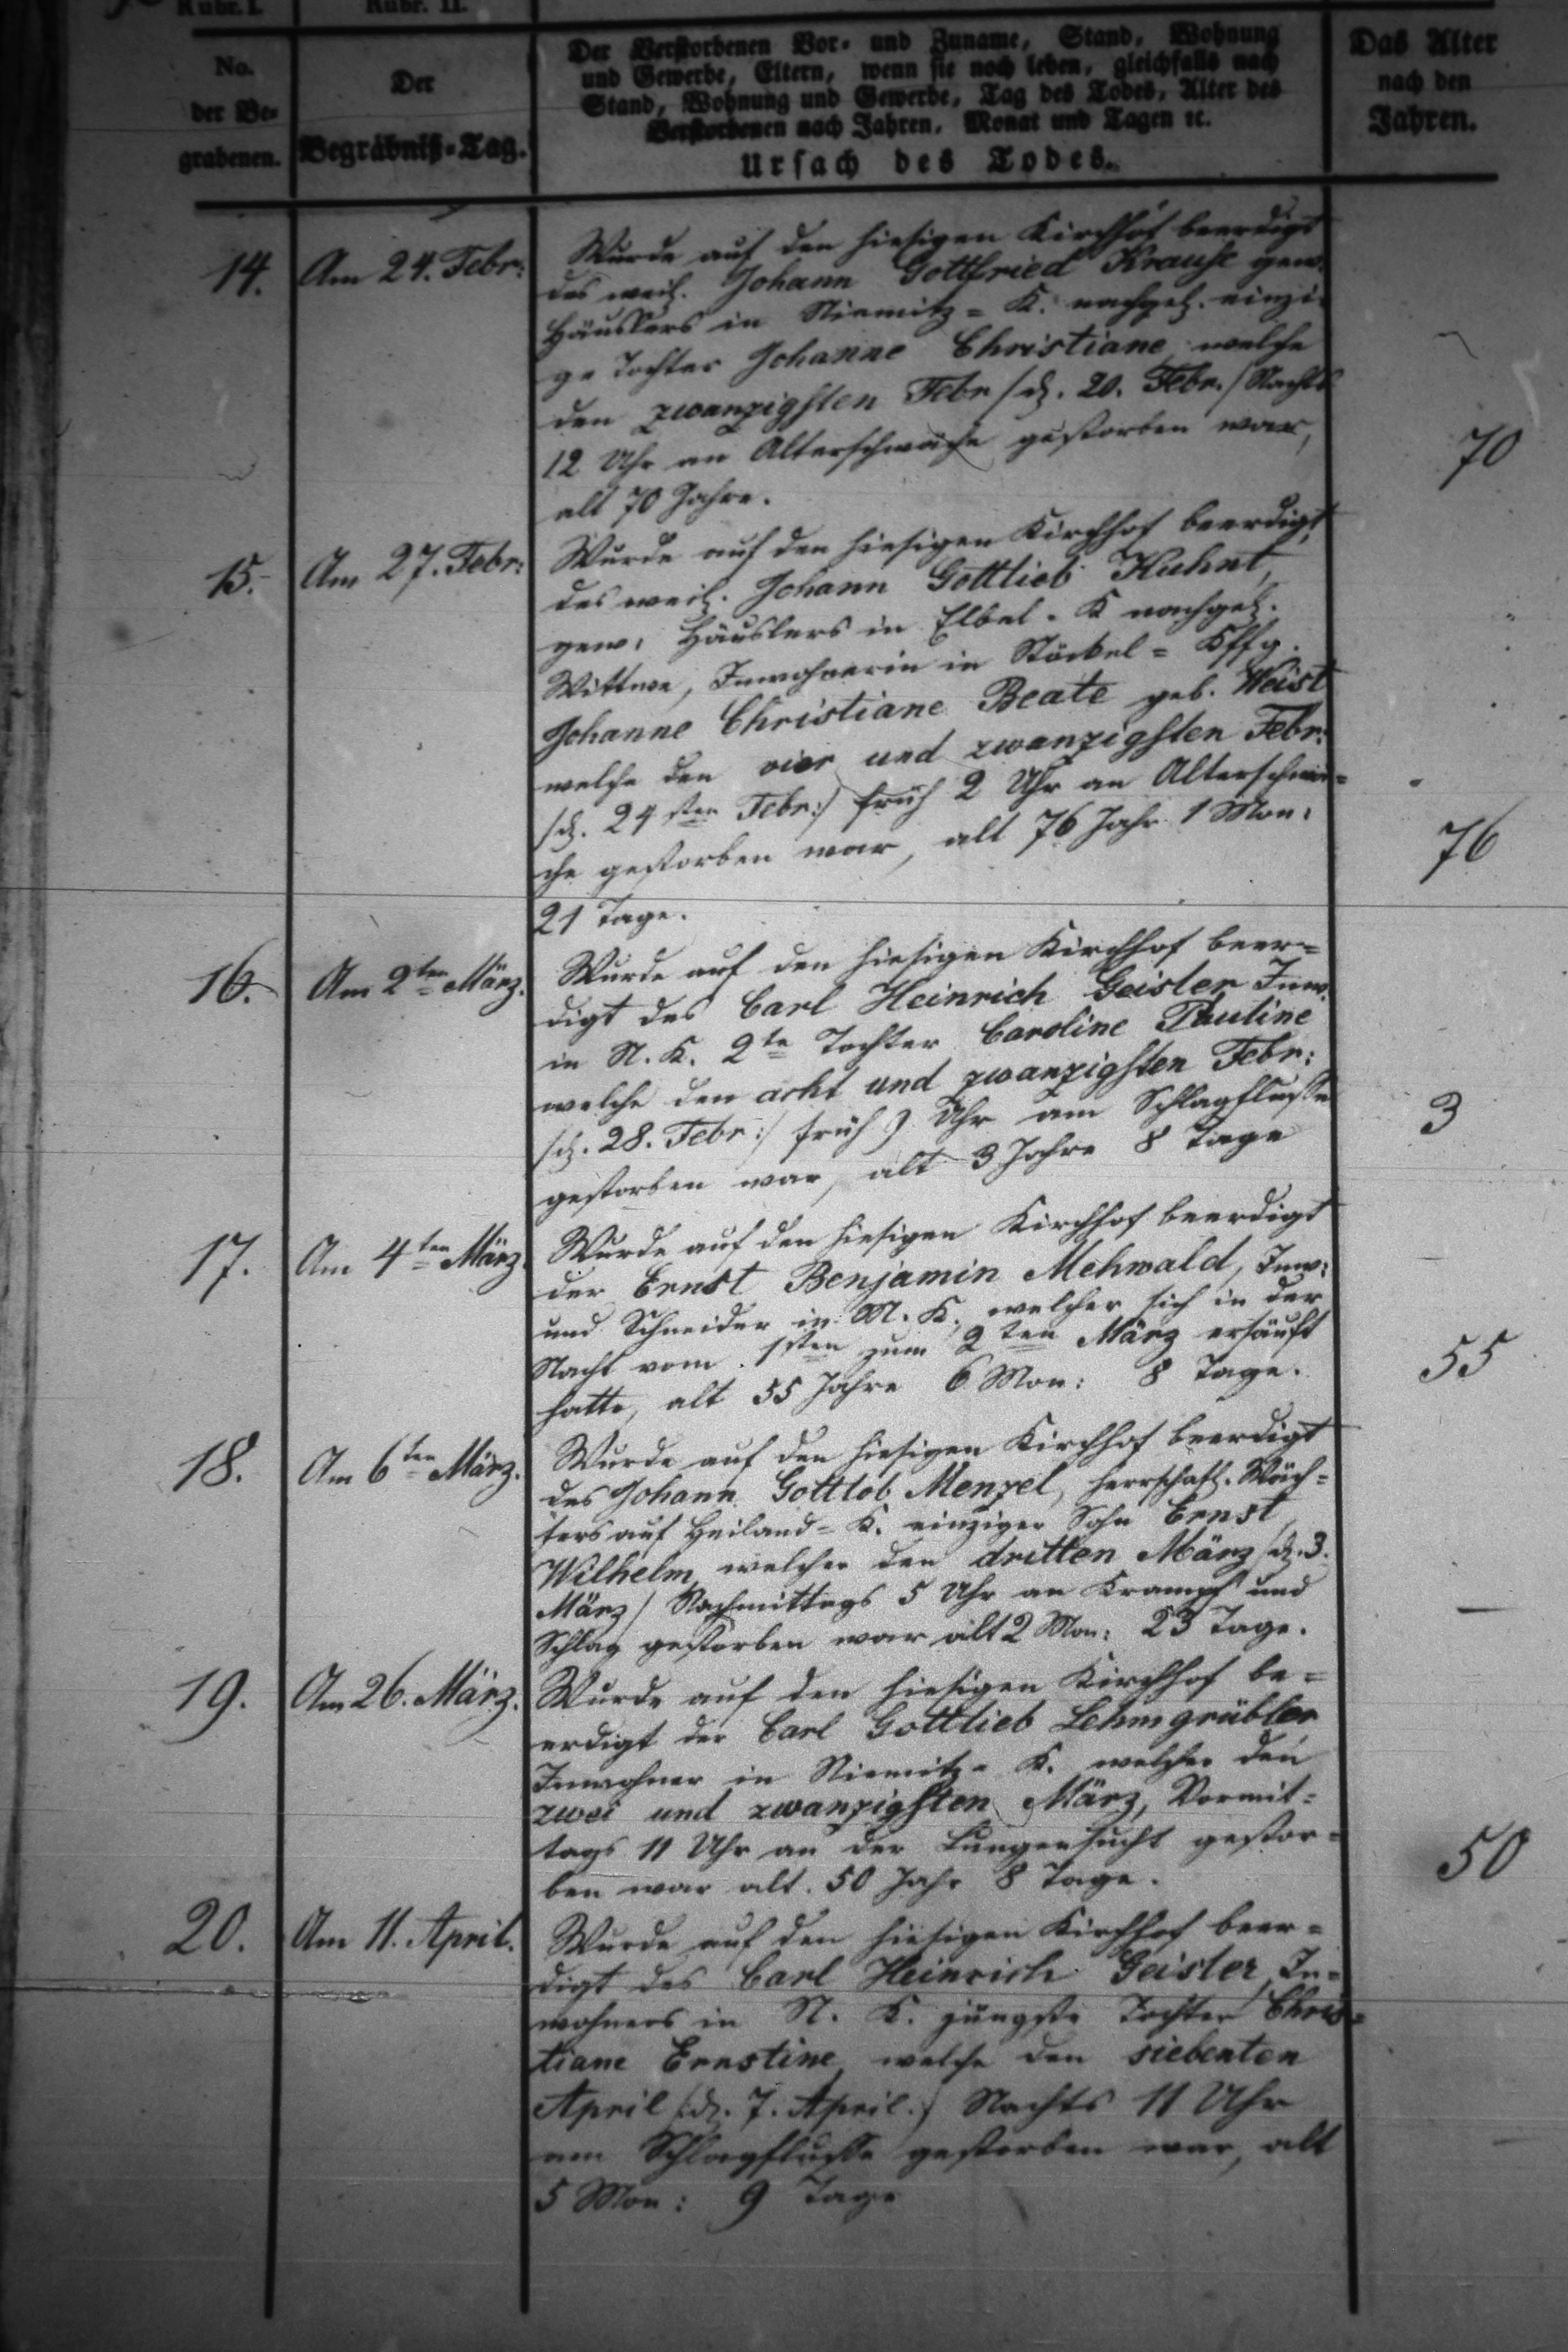 Rubr. I.
Rubr. II.
No.
der Be=
grabenen.
Der
Begräbniß=Tag.
Der Verstorbenen Vor= und Zuname, Stand, Wohnung
und Gewerbe, Eltern, wenn sie noch leben, gleichfalls nach
Stand, Wohnung und Gewerbe, Tag des Todes, Alter des
Verstorbenen nach Jahren, Monat und Tagen ꝛc.
Ursach des Todes.
Das Alter
nach den
Jahren.
14.
Am 24. Febr:
Wurde auf den hiesigen Kirchhof beerdigt
des weil. Johann Gottfried Krause gew.
Häuslers in Niemitz= K. nachgel. einzi=
ge Tochter Johanne Christiane welche
den zwanzigsten Febr /d. 20. Febr./ Nachts
12 Uhr an Alterschwäche gestorben war,
alt 70 Jahre.
70
15.
Am 27. Febr:
Wurde auf den hiesigen Kirchhof beerdigt,
des weil. Johann Gottlieb Kuhnt,
gew: Häuslers in Elbel= K nachgel.
Wittwe, Inwohnerin in Stöckel= Kffg.
Johanne Christiane Beate geb. Weist
welche den vier und zwanzigsten Febr:
/d. 24sten Febr:/ früh 2 Uhr an Alterschwä=
che gestorben war, alt 76 Jahr 1 Mon:
21 Tage.
76
16.
Am 2ten März.
Wurde auf den hiesigen Kirchhof beer=
digt des Carl Heinrich Geisler Inw.
in N. K. 2te Tochter Caroline Pauline
welche den acht und zwanzigsten Febr:
/d. 28. Febr:/ früh 9 Uhr am Schlagflusse
gestorben war, alt 3 Jahre 8 Tage
3
17.
Am 4ten März.
Wurde auf den hiesigen Kirchhof beerdigt
der Ernst Benjamin Mehwald, Inw:
und Schneider in M. K. welcher sich in der
Nacht vom 1sten zum 2ten März ersäuft
hatte, alt 55 Jahre 6 Mon: 8 Tage.
55
18.
Am 6ten März.
Wurde auf den hiesigen Kirchhof beerdigt
des Johann Gottlob Menzel, herrschaftl. Wäch=
ters auf Heiland= K. einziger Sohn Ernst
Wilhelm, welcher den dritten März /d. 3.
März/ Nachmittags 5 Uhr an Krampf und
Schlag gestorben war alt 2 Mon: 23 Tage.
—
19.
Am 26. März.
Wurde auf den hiesigen Kirchhof be=
erdigt der Carl Gottlieb Lehmgrübler
Inwohner in Niemitz= K. welcher den
zwei und zwanzigsten März, Vormit=
tags 11 Uhr an der Lungensucht gestor=
ben war alt. 50 Jahr 8 Tage.
50
20.
Am 11. April.
Wurde auf den hiesigen Kirchhof beer=
digt des Carl Heinrich Geisler, In=
wohners in N. K. jüngste Tochter Chris=
tiane Ernstine, welche den siebenten
April /:d. 7. April./ Nachts 11 Uhr
am Schlagflusse gestorben war, alt
5 Mon: 9 Tage